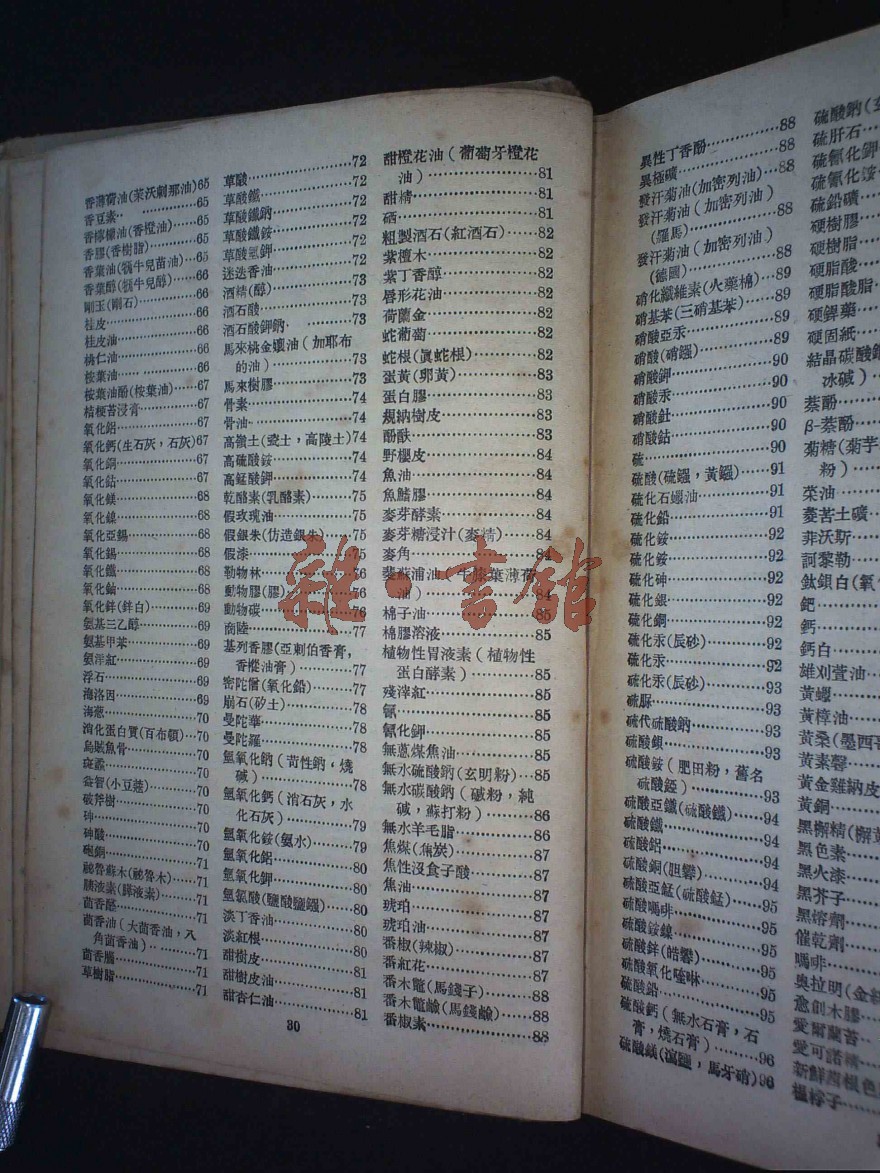 香薄荷油(萊沃劑那油)65
香豆素‥ ………65
香檸檬油(香橙油)…65
香膠(香樹脂)………66
香葉油(牻牛兒苗油)66
香葉醇(牻牛兒醇)…66
剛玉(剛石)…………66
桂皮…………………66
桂皮油………………66
桃仁油………………66
桉葉油………………66
桉葉油酚(桉葉油)…67
桔梗苦浸膏…………67
氧化鋁………………67
氧化鈣(生石灰,石灰)67
氧化銅………………67
氧化鈷………………67
氧化鎂………………68
氧化鎳………………68
氧化亞錫……………68
氧化錫………………68
氧化鐵………………68
氧化鈾………………68
氧化鋅(鋅白)………69
氨基三乙醇…………69
氨基甲苯……………69
氨洋紅………………69
浮石…………………69
海洛因………………69
海葱…………………70
消化蛋白質(百布頓)…70
烏賊魚骨……………70
斑蝥…………………70
益智(小豆蔻)………70
破斧樹………………70
砷……………………70
砷酸…………………70
砲銅…………………71
祕魯蘇木(祕魯木)…71
胰液素(膵液素)……71
茴香醛………………71
茴香油(大茴香油,八
角茴香油)………71
茴香腦………………71
草樹脂………………71
草酸…………………72
草酸鐵………………72
草酸鐵鈉……………72
草酸鐵銨……………72
草酸氫鉀……………72
迷迭香油……………72
酒精(醇)……………73
酒石酸………………73
酒石酸鉀鈉…………73
馬來桃金孃油(加耶布
的油)……………73
馬來樹膠……………73
骨素…………………74
骨油…………………74
高嶺土(瓷土,高陵土)74
高硫酸銨……………74
高錳酸鉀……………74
乾酪素(乳酪素)……75
假玫瑰油……………75
假銀朱(仿造銀朱)…75
假漆…………………75
勒物林………………76
動物膠(膠)…………76
動物碳………………76
商陸…………………77
基列香膠(亞剌伯香膏,
香樅油膏)………77
密陀僧(氧化鉛)……77
崩石(矽土)…………78
曼陀華………………78
曼陀羅………………78
氫氧化鈉(苛性鈉,燒
碱)………………78
氫氧化鈣(消石灰,水
化石灰)…………79
氫氧化銨(氨水)……79
氫氧化鋁……………80
氫氧化鉀……………80
氫氯酸(鹽酸鹽鏹)…80
淡丁香油……………80
淡紅根………………80
甜樹皮………………81
甜樹皮油……………81
甜杏仁油……………81
甜橙花油(葡萄牙橙花
油)………………81
甜精…………………81
硒……………………81
粗製酒石(紅酒石)…82
紫檀木………………82
紫丁香醇……………82
唇形花油……………82
荷蘭金………………82
蛇葡萄………………82
蛇根(眞蛇根)………82
蛋黃(卵黃)…………83
蛋白膠………………83
規納樹皮……………83
酚酞…………………83
野櫻皮………………84
魚油…………………84
魚鰾膠………………84
麥芽酵素……………84
麥芽糖浸汁(麥精)…84
麥角…………………84
斐蘇浦油(牛膝葉薄荷
油)………………84
棉子油………………85
棉膠溶液……………85
植物性胃液素(植物性
蛋白酵素)………85
殘滓紅………………85
氰……………………85
氰化鉀………………85
無蒽煤焦油…………85
無水硫酸鈉(玄明粉)…85
無水碳酸鈉(碱粉,純
碱,蘇打粉)……86
無水羊毛脂…………86
焦煤(焦炭)…………87
焦性沒食子酸………87
焦油…………………87
琥珀…………………87
琥珀油………………87
番椒(辣椒)…………87
番紅花………………87
番木鼈(馬錢子)……88
番木鼈鹼(馬錢鹼)…88
番椒素………………88
30
異性丁香酚…………88
異極礦………………88
發汗菊油(加密列油)
發汗菊油(加密列油)
(羅馬)……………88
發汗菊油(加密列油)
(德國)……………88
硝化纖維素(火藥棉)…89
硝基苯(三硝基苯)…89
硝酸亞汞……………89
硝酸(硝鏹)…………89
硝酸鉀………………90
硝酸汞………………90
硝酸釷………………90
硝酸鈷………………90
硫……………………90
硫酸(硫鏹,黃鏹)…91
硫化石蠟油…………91
硫化鉛………………91
硫化銨………………92
硫化銨………………92
硫化砷………………92
硫化銀………………92
硫化銅………………92
硫化汞(辰砂)………92
硫化汞………………92
硫化汞(辰砂)………93
硫脲…………………93
硫代硫酸鈉…………93
硫酸鋇………………93
硫酸銨(肥田粉,舊名
硫酸錏)…………93
硫酸亞鐵(硫酸鐵)…94
硫酸鐵………………94
硫酸鋁………………94
硫酸銅(胆礬)………94
硫酸亞錳(硫酸錳)…95
硫酸嗎啡……………95
硫酸銨鎳……………95
硫酸鋅(皓礬)………95
硫酸氧化喹啉………95
硫酸鉛………………95
硫酸鈣(無水石膏,石
膏,燒石膏)……96
硫酸鎂(瀉鹽,馬牙硝)96
硫酸鈉(玄
硫肝石
硫氰化鉀
硫氰化銨
硫鉛礦
硬樹膠
硬樹脂
硬脂酸
硬脂酸脂
硬銲藥
硬固紙
結晶碳酸鈉
冰碱)
萘酚
β-萘酚
菊糖(菊芋
粉)
菜油
菱苦土礦
菲沃斯
訶黎勒
鈦鋇白(氧
鈀
鈣
鈣白
雄刈萱油
黃蠟
黃樟油
黃桑(墨西哥
黃素馨
黃金雞納皮
黃銅
黑檞精(檞黃
黑色素
黑火漆
黑芥子
黑熔劑
催乾劑
嗎啡
奧拉明(金絲
愈創木膠
愛爾蘭苔
愛可諾精
新鮮茜根色
榲桲子
雜·書館